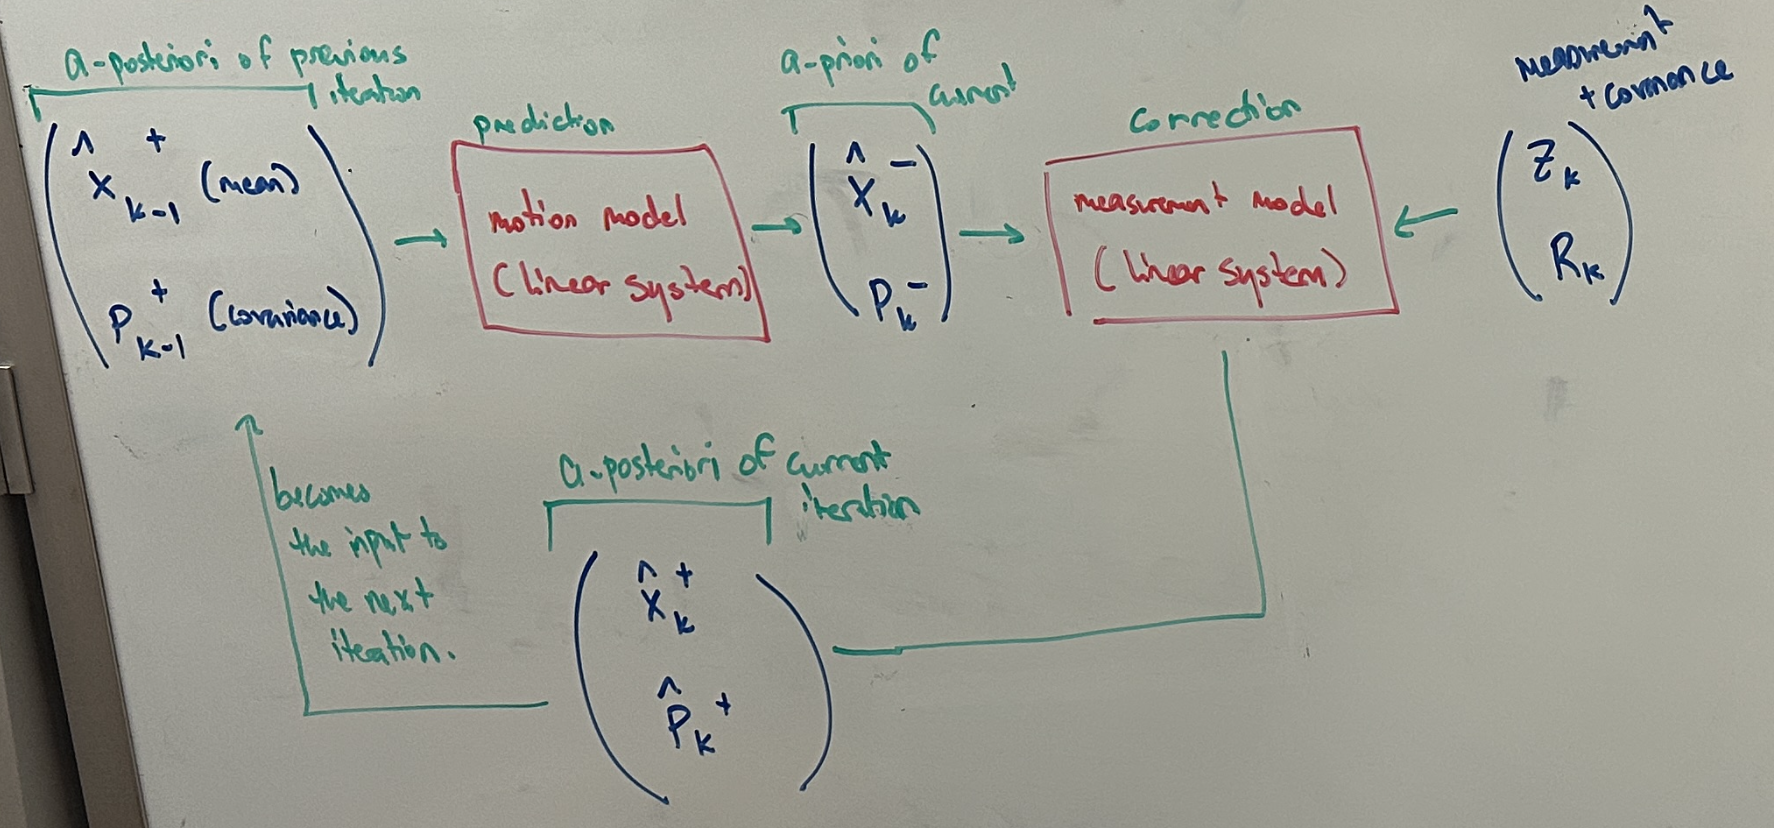 a-posteriori of previous
iteration
x̂⁺ₖ₋₁ (mean)
P⁺ₖ₋₁ (covariance)
prediction
motion model
(linear system)
a-priori of
current
x̂ₖ⁻
Pₖ⁻
correction
measurement model
(linear system)
measurement
+ covariance
Zₖ
Rₖ
a-posteriori of current
iteration
x̂ₖ⁺
P̂ₖ⁺
becomes
the input to
the next
iteration.